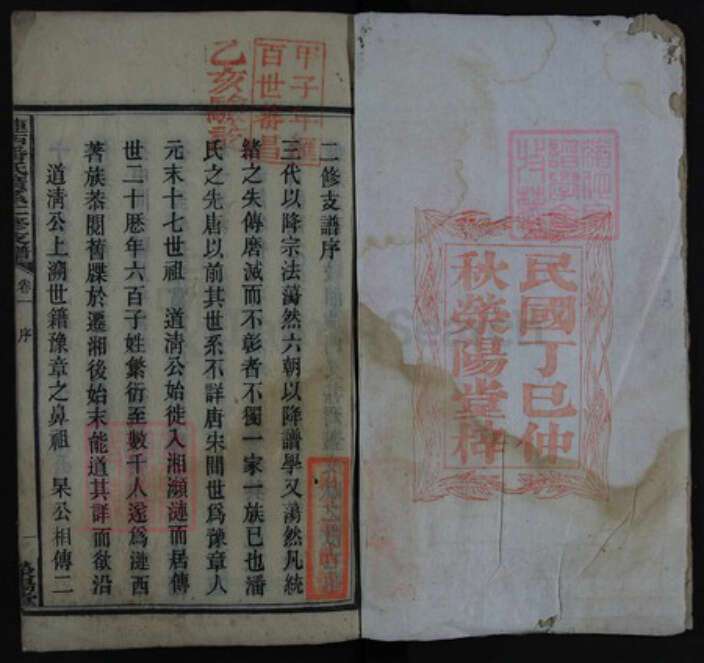 民國丁巳仲
秋滎陽堂梓
甲子年匯
百世蕃昌
乙亥驗訖
二修支譜序
三代以降宗法蕩然六朝以降譜學又蕩然凡統
緒之失傳磨滅而不彰者不獨一家一族已也潘
氏之先唐以前其世系不詳唐宋間世爲豫章人
元末十七世祖 道淸公始徙入湘瀕漣而居傳
世二十歷年六百子姓繁衍至數千人遂爲漣西
著族茶閱舊牒於遷湘後始末能道其詳而欲沿
道淸公上溯世籍豫章之鼻祖 杲公相傳二
二修支譜
卷一
序
一